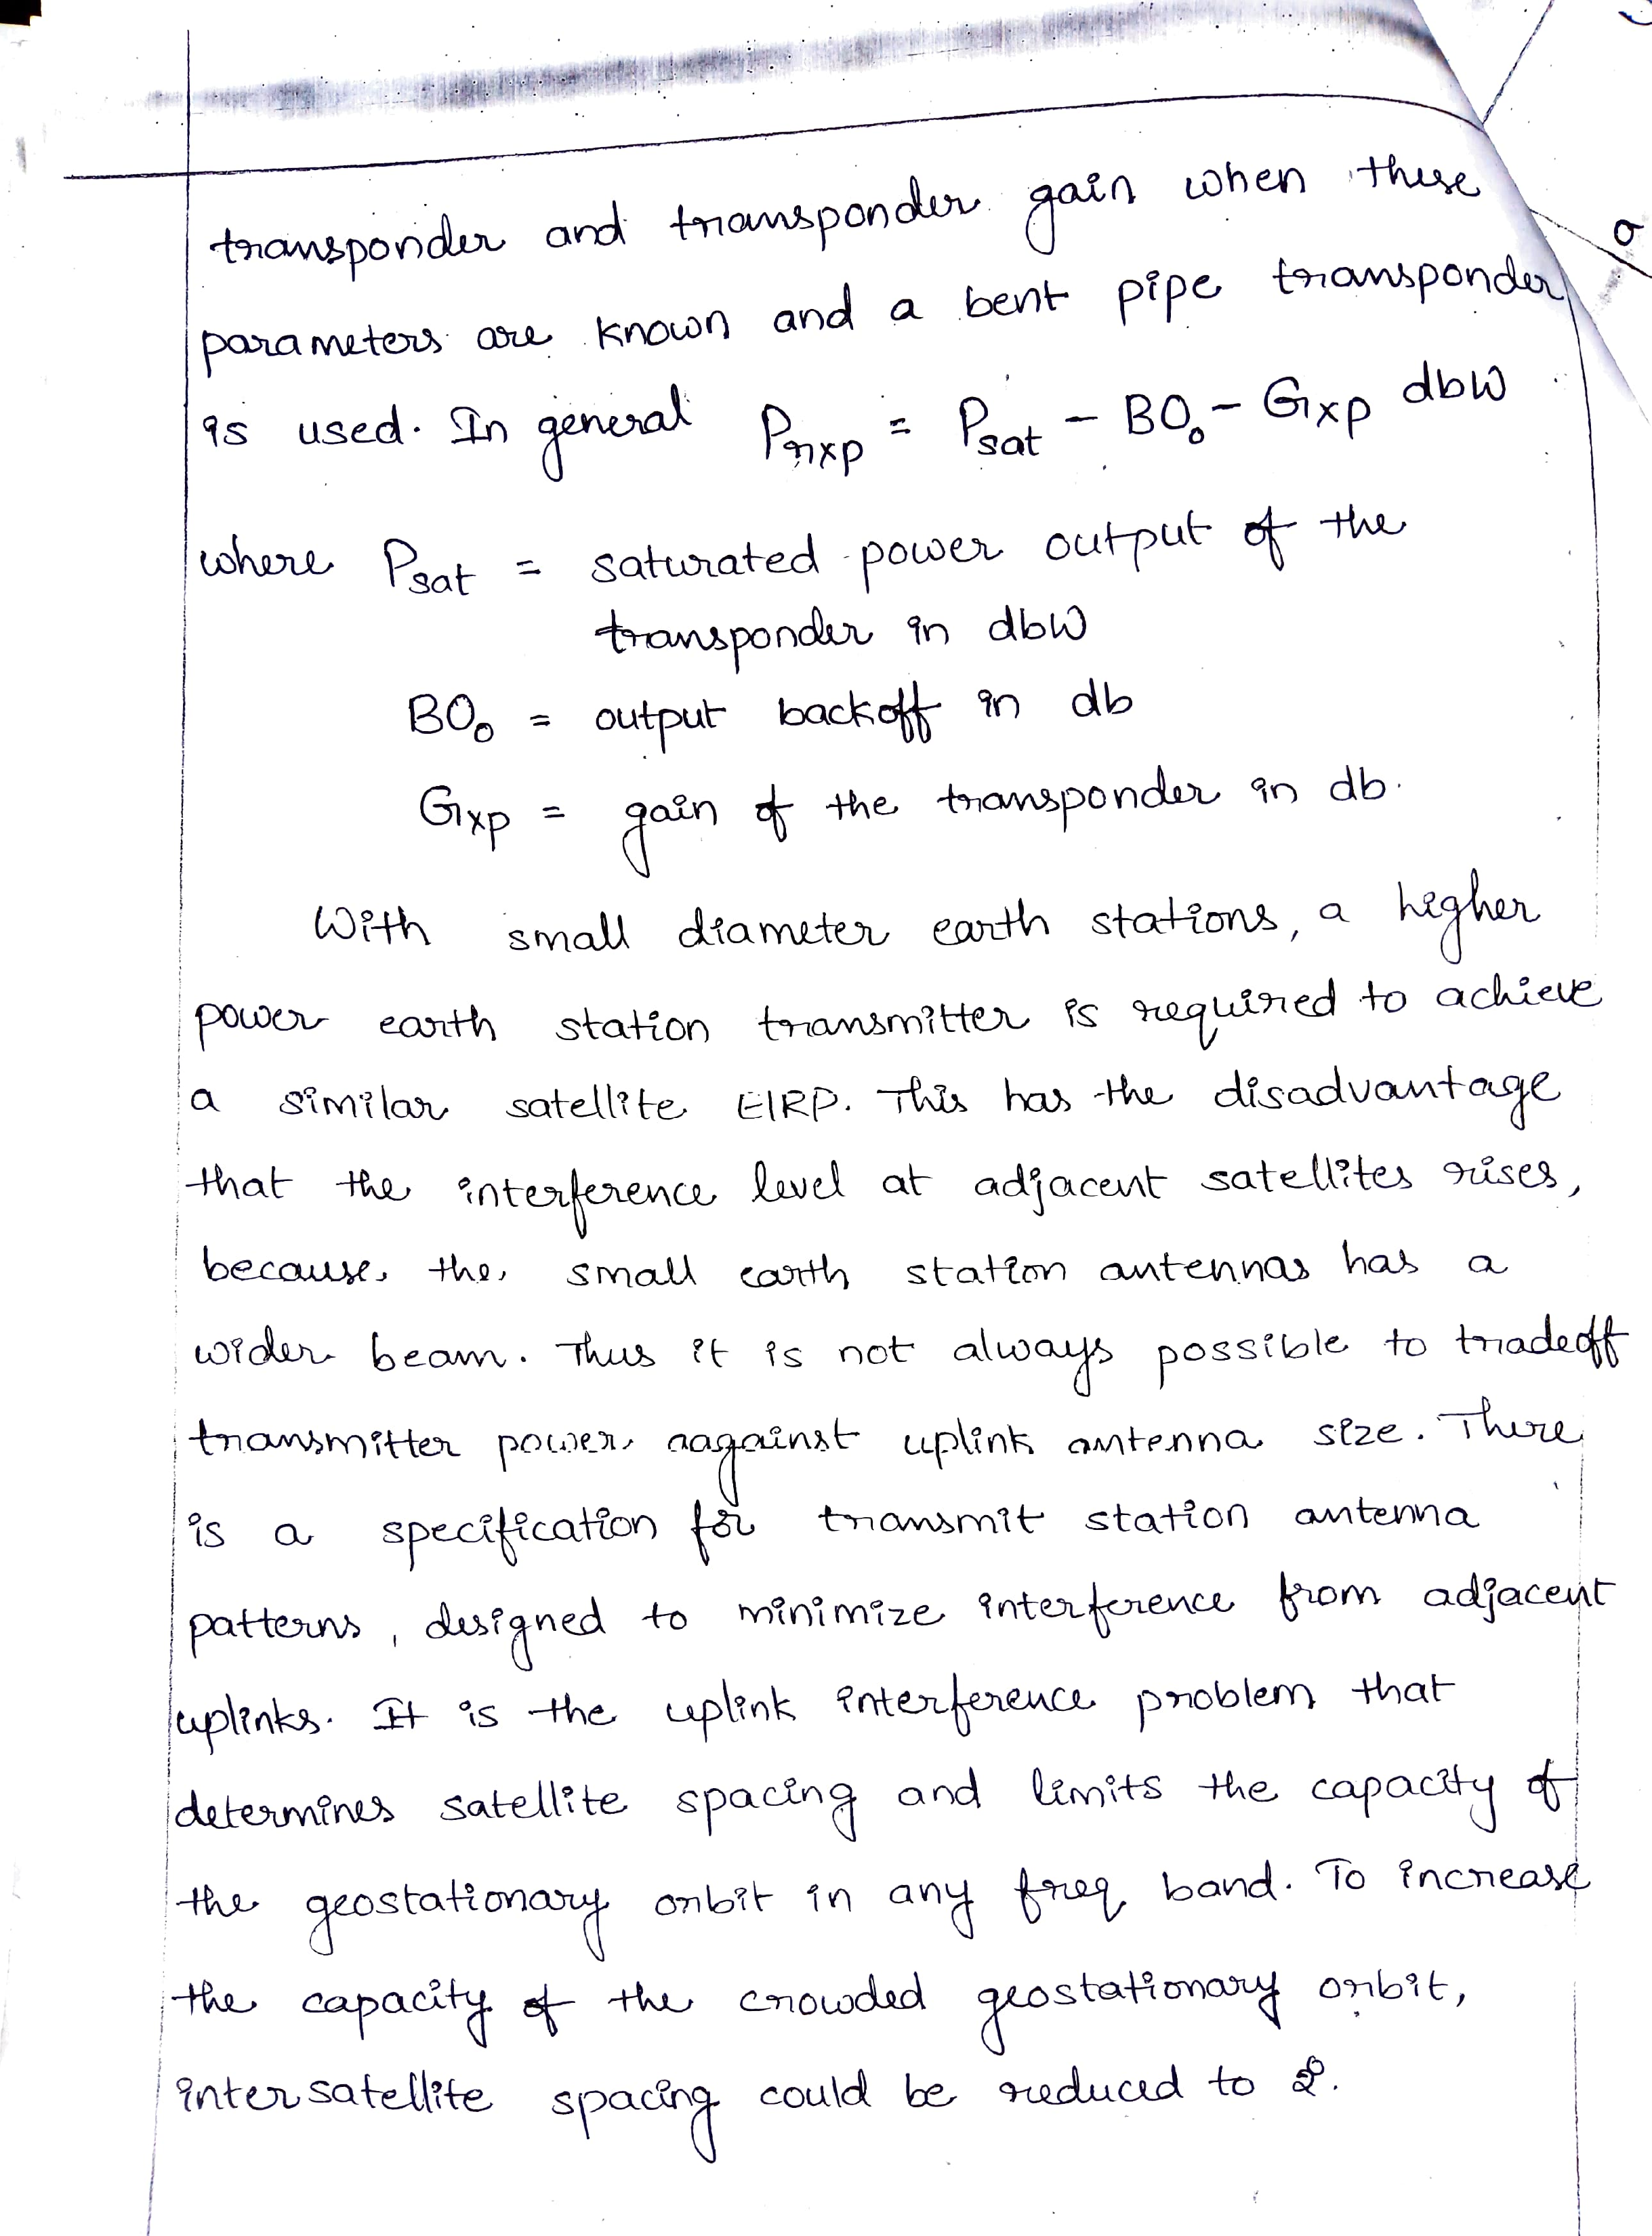 transponder and transponder gain when these
parameters are known and a bent pipe transponder
is used. In general Prxp = Psat - BO₀ - Gxp dbW
where Psat = saturated power output of the
transponder in dbW
BO₀ = output backoff in db
Gxp = gain of the transponder in db.
With small diameter earth stations, a higher
power earth station transmitter is required to achieve
a similar satellite EIRP. This has the disadvantage
that the interference level at adjacent satellites rises,
because the small earth station antennas has a
wider beam. Thus it is not always possible to tradeoff
transmitter power aagainst uplink antenna size. There
is a specification for transmit station antenna
patterns, designed to minimize interference from adjacent
uplinks. It is the uplink interference problem that
determines satellite spacing and limits the capacity of
the geostationary orbit in any freq band. To increase
the capacity of the crowded geostationary orbit,
inter satellite spacing could be reduced to 2°.